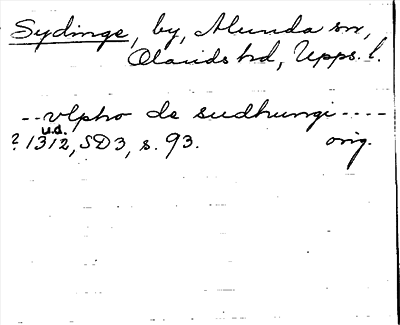 Sydinge, by, Alunda sn,
Olands hd, Upps. l.
-- vlpho de sudhungi ----
u.d.
? 1312, SD3, s. 93. orig.